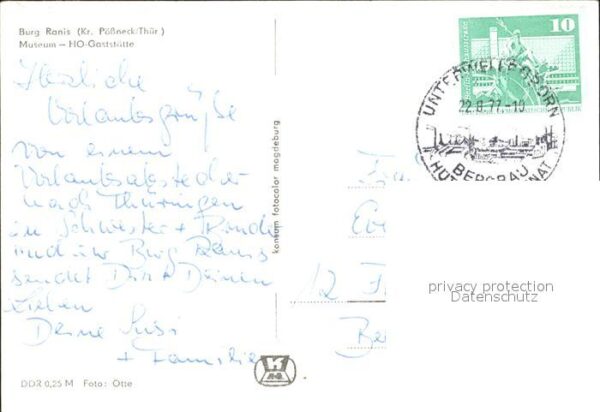 Burg Ranis (Kr. Pößneck/Thür.)
Museum – HO-Gaststätte
Herzliche
Urlaubsgrüße
von einem
Urlaubsabstecher
nach Thüringen
zu Schwester + 
und zur Burg Ranis
sendet Dir + Deinen
Lieben
Deine Susi
+ Familie
DDR 0,25 M Foto: Otte
konsum fotocolor magdeburg
K
10
UNTERWELLENBORN
22.8.77-10
BERGBAU
12
privacy protection
Datenschutz